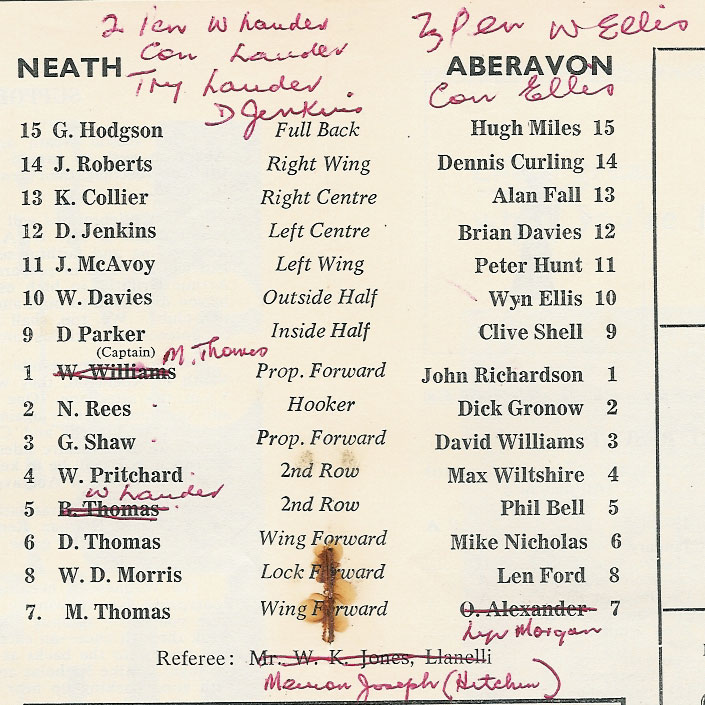 2 Pen W Lauder
Con Lauder
Try Lauder
D Jenkins
3 Pen W Ellis
Con Ellis
NEATH ABERAVON
15 G. Hodgson Full Back Hugh Miles 15
14 J. Roberts Right Wing Dennis Curling 14
13 K. Collier Right Centre Alan Fall 13
12 D. Jenkins Left Centre Brian Davies 12
11 J. McAvoy Left Wing Peter Hunt 11
10 W. Davies Outside Half Wyn Ellis 10
9 D Parker Inside Half Clive Shell 9
(Captain) M. Thomas
1 W. Williams Prop. Forward John Richardson 1
2 N. Rees Hooker Dick Gronow 2
3 G. Shaw Prop. Forward David Williams 3
4 W. Pritchard 2nd Row Max Wiltshire 4
W Lauder
5 B. Thomas 2nd Row Phil Bell 5
6 D. Thomas Wing Forward Mike Nicholas 6
8 W. D. Morris Lock Forward Len Ford 8
7. M. Thomas Wing Forward O. Alexander 7
Lyn Morgan
Referee: Mr. W. K. Jones, Llanelli
Merion Joseph (Hitchin)